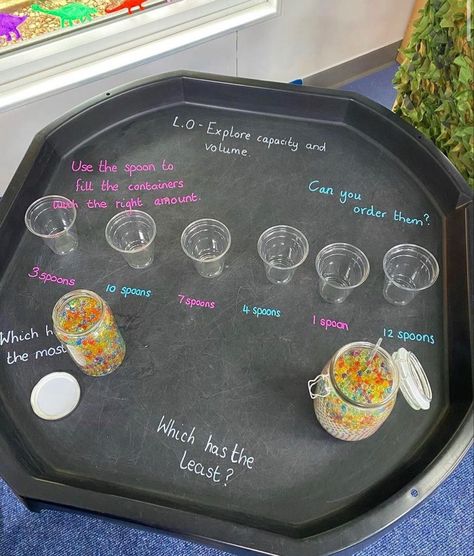 L.O - Explore capacity and
volume.
Use the spoon to
fill the containers
with the right amount.
Can you
order them?
3 spoons
10 spoons
7 spoons
4 spoons
1 spoon
12 spoons
Which
the most
Which has the
least?